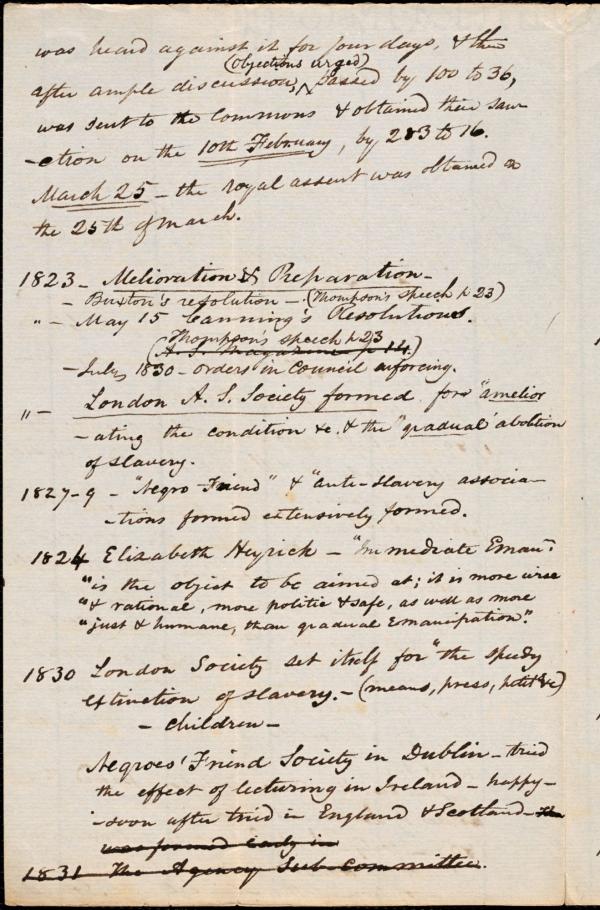 was heard against it for four days, & then
(objections urged)
after ample discussion, passed by 100 to 36,
was sent to the Commons & obtained their san-
-ction on the 10th February, by 283 to 16.
March 25 - the royal assent was obtained on
the 25th of March.
1823 - Melioration & Preparation -
- Buxton's resolution - (Thompson's speech p 23)
" - May 15 Canning's Resolutions.
Thompson's speech p 23
(A. S. Magazine p 14.)
- July 1830 - orders in Council enforcing.
" - London A. S. Society formed for "amelior
-ating the condition &c. & the "gradual" abolition
of slavery.
1827-9 - "Negro Friend" & "anti-slavery associa-
-tions formed extensively formed.
1824 Elizabeth Heyrick - "Immediate Eman:n
"is the object to be aimed at; it is more wise
"& rational, more politic & safe, as well as more
"just & humane, than gradual emancipation".
1830 London Society set itself for "the speedy
extinction of slavery. - (means, press, petit &c)
- children -
Negroes' Friend Society in Dublin - tried
the effect of lecturing in Ireland - happy -
- soon after tried in England & Scotland - The
was formed early in
1831 The Agency Sub-Committee.